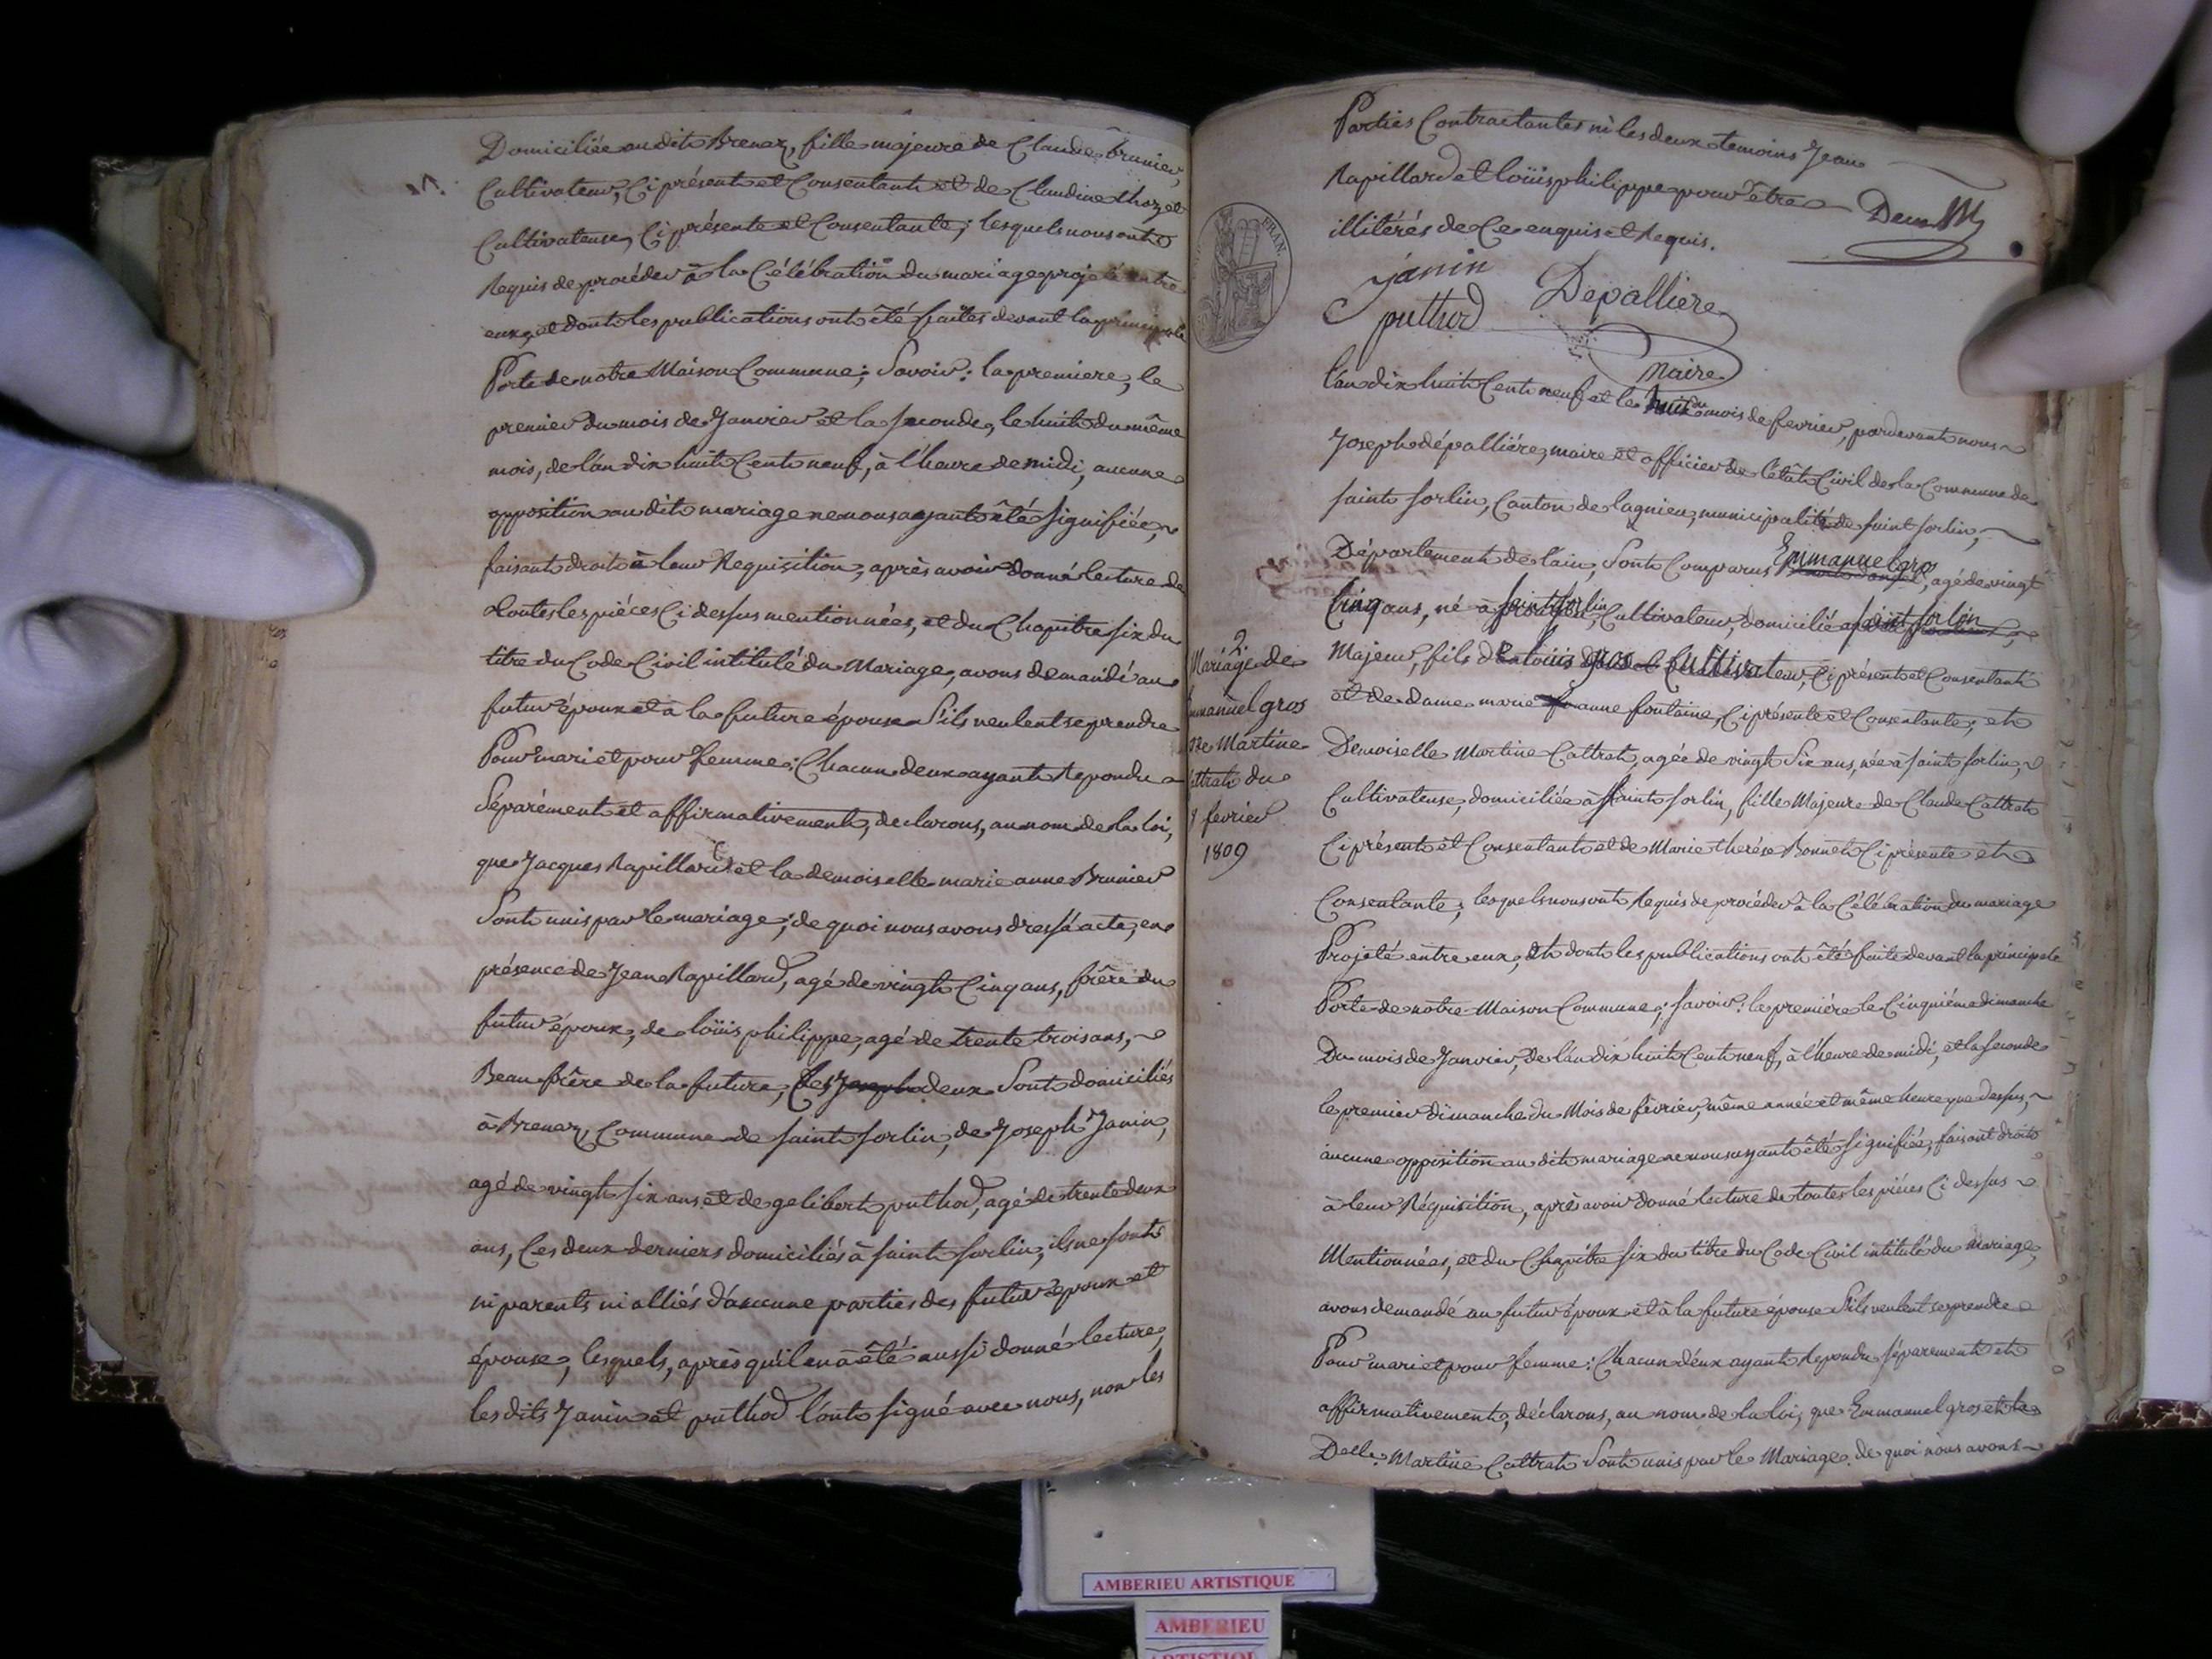 Domiciliée au dit Brenaz, fille majeure de Claude Brunier,
Cultivateur, Ci présent et Consentant et de Claudine thozet
Cultivateuse, Ci présente et Consentante; lesquels nous ont
Requis de procéder à la Célébration du mariage projeté entre
eux, et dont les publications ont été faites devant la principale
Porte de notre Maison Commune; Savoir: la premiere, le
premier du mois de Janvier et la seconde, le huit du même
mois, de l'an dix huit Cent neuf, à l'heure de midi, aucune
opposition au dit mariage ne nous ayant été signifiée,
faisant droit à leur Requisition, après avoir donné lecture de
toutes les piéces Ci dessus mentionnées, et du Chapitre six du
titre du Code Civil intitulé du Mariage, avons demandé au
futur époux et à la future épouse S'ils veulent se prendre
Pour mari et pour femme; Chacun d'eux ayant Repondu
Séparément et affirmativement, declarons, au nom de la loi,
que Jacques Rapillard et la demoiselle marie anne Brunier
Sont unis par le mariage; de quoi nous avons dressé acte, en
présence de Jean Rapillard, agé de vingt Cinq ans, frère du
futur époux, de loüis philippe, agé de trente trois ans,
Beau frère de la future, Les Joseph deux Sont domiciliés
à Brenaz, Commune de saint sorlin, de Joseph Janin,
agé de vingt six ans et de gelibert puthod, agé de trente deux
ans, Ces deux derniers domiciliés à saint sorlin, ils ne sont
ni parents ni alliés d'aucune parties des futur époux et
épouse, lesquels, après qu'il en à été aussi donné lecture,
les dits Janin et puthod l'ont signé avec nous, non les
Parties Contractantes ni les deux temoins Jean
Rapillard et loüis philippe pour être
illitérés de Ce enquis et Requis.
FRAN.
Janin
Depalliere
puthod
Maire
2
Mariage de
Emmanuel gros
Martine
Cattrat du
8 fevrier
1809
l'an dix huit Cent neuf et le huit du mois de fevrier, pardevant nous
Joseph dépallière, maire et officier de l'état Civil de la Commune de
saint sorlin, Canton de lagnieu, municipalité de saint sorlin,
Département de l'ain, Sont Comparus Emmanuel gros, agé de vingt
Cinq ans, né à saint sorlin, Cultivateur, domicilié à saint sorlin,
Majeur, fils de loüis gros Cultivateur, Ci présent et Consentant
et de dame marie anne fontaine, Ci présente et Consentante; et
Demoiselle Martine Cattrat, agée de vingt Six ans, née à saint sorlin,
Cultivateuse, domiciliée à saint sorlin, fille Majeure de Claude Cattrat
Ci présent et Consentant et de Marie thérèse Bonnet Ci présente et
Consentante; lesquels nous ont Requis de procéder à la Célébration du mariage
Projeté entre eux, et dont les publications ont été faite devant la principale
Porte de notre Maison Commune; savoir: la première le Cinquième dimanche
Du mois de Janvier, de l'an dix huit Cent neuf, à l'heure de midi, et la seconde
le premier dimanche du Mois de février, même année et même heure que dessus,
aucune opposition au dit mariage ne nous ayant été signifiée, faisant droit
à leur Réquisition, après avoir donné lecture de toutes les piéces Ci dessus
Mentionnées, et du Chapitre six du titre du Code Civil intitulé du mariage,
avons demandé au futur époux et à la future épouse S'ils veulent se prendre
Pour mari et pour femme: Chacun d'eux ayant Repondu séparément et
affirmativement, déclarons, au nom de la loi, que Emmanuel gros et la
Delle. Martine Cattrat Sont unis par le Mariage. de quoi nous avons
AMBERIEU ARTISTIQUE
AMBERIEU
ARTISTIQUE